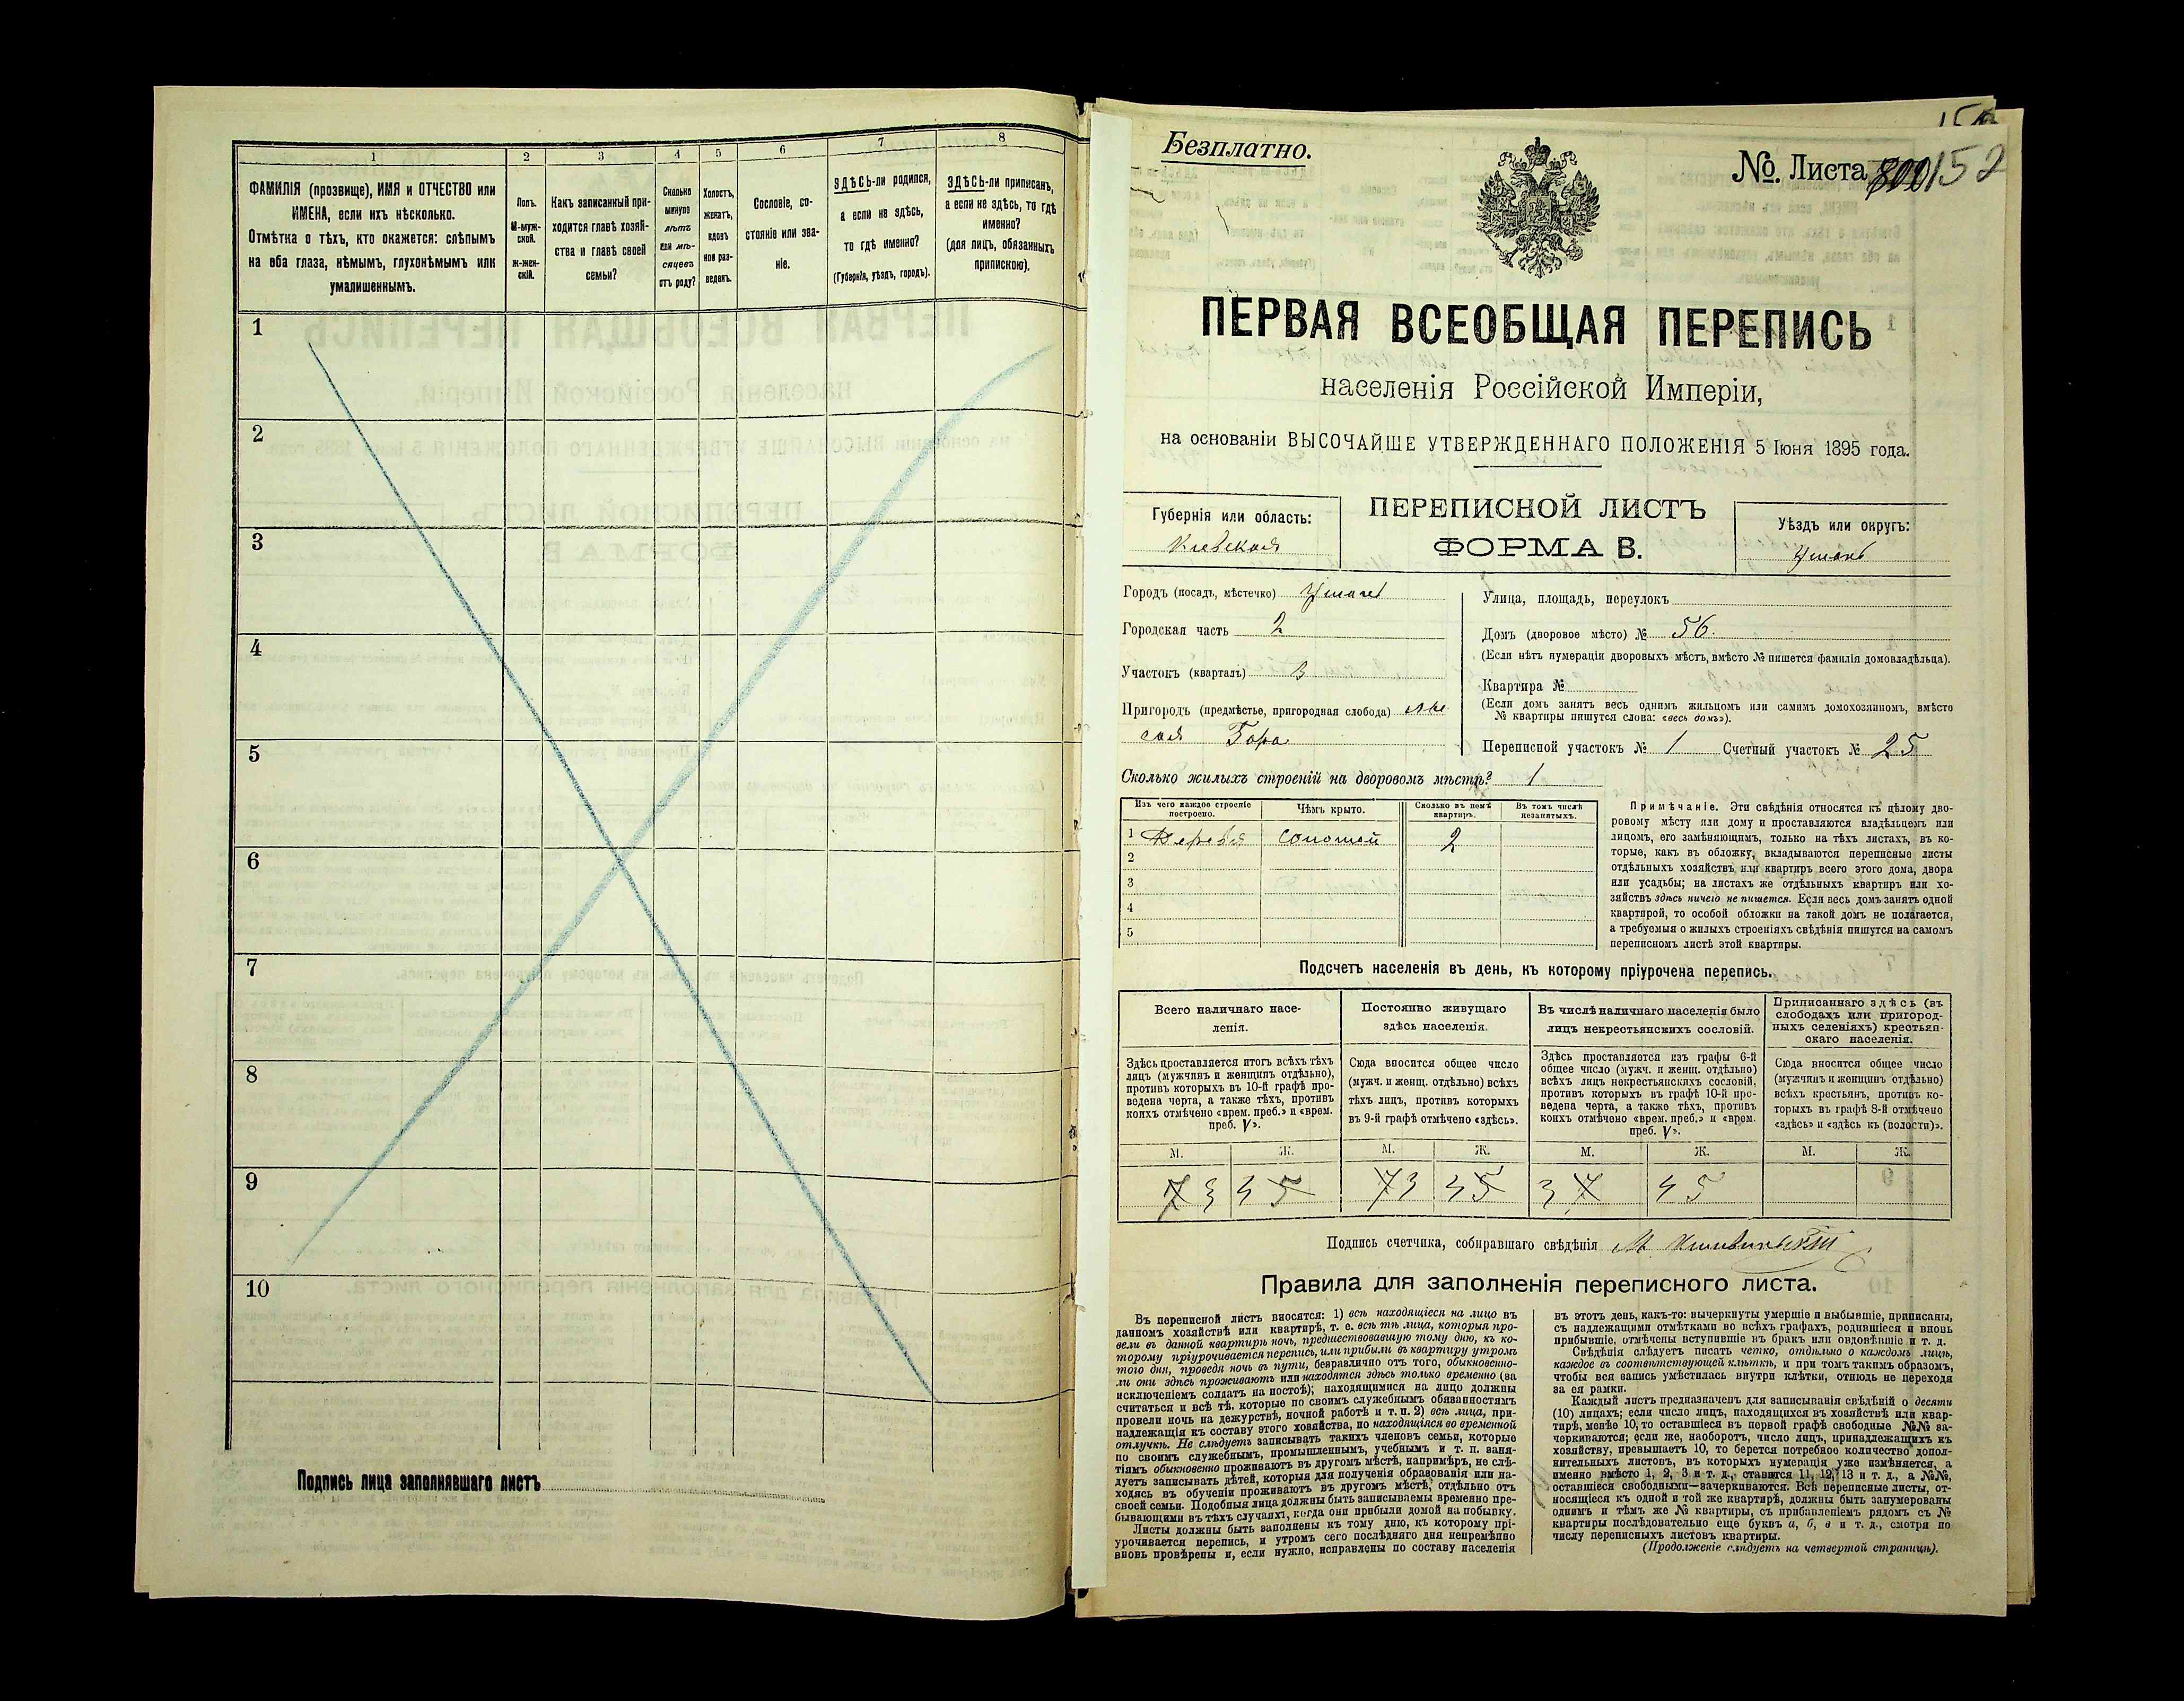 1
2
3
4
5
6
7
8
ФАМИЛІЯ (прозвище), ИМЯ и ОТЧЕСТВО или
ИМЕНА, если ихъ нѣсколько.
Отмѣтка о тѣхъ, кто окажется: слѣпымъ
на оба глаза, нѣмымъ, глухонѣмымъ или
умалишеннымъ.
Полъ.
М-муж-
ской.
Ж-жен-
скій.
Какъ записанный при-
ходится главѣ хозяй-
ства и главѣ своей
семьи?
Сколько
минуло
лѣтъ
или мѣ-
сяцевъ
отъ роду?
Холостъ,
женатъ,
вдовъ
или раз-
веденъ.
Сословіе, со-
стояніе или зва-
ніе.
ЗДѢСЬ-ли родился,
а если не здѣсь,
то гдѣ именно?
(Губернія, уѣздъ, городъ).
ЗДѢСЬ-ли приписанъ,
а если не здѣсь, то гдѣ
именно?
(для лицъ, обязанныхъ
припискою).
1
2
3
4
5
6
7
8
9
10
Подпись лица заполнявшаго листъ
Безплатно.
№. Листа 152
ПЕРВАЯ ВСЕОБЩАЯ ПЕРЕПИСЬ
населенія Россійской Имперіи,
на основаніи ВЫСОЧАЙШЕ УТВЕРЖДЕННАГО ПОЛОЖЕНІЯ 5 Іюня 1895 года.
Губернія или область:
Кіевская
ПЕРЕПИСНОЙ ЛИСТЪ
ФОРМА В.
Уѣздъ или округъ:
Умань
Городъ (посадъ, мѣстечко) Умань
Городская часть 2
Участокъ (кварталъ) 3
Пригородъ (предмѣстье, пригородная слобода) Лы
сая Гора
Улица, площадь, переулокъ
Домъ (дворовое мѣсто) № 56.
(Если нѣтъ нумераціи дворовыхъ мѣстъ, вмѣсто № пишется фамилія домовладѣльца).
Квартира №
(Если домъ занятъ весь однимъ жильцомъ или самимъ домохозяиномъ, вмѣсто
№ квартиры пишутся слова: «весь домъ»).
Переписной участокъ № 1 Счетный участокъ № 25
Сколько жилыхъ строеній на дворовомъ мѣстѣ? 1
Изъ чего каждое строеніе
построено.
Чѣмъ крыто.
Сколько въ немъ
квартиръ.
Въ томъ числѣ
незанятыхъ.
1 Дерева соломой 2
2
3
4
5
Примѣчаніе. Эти свѣдѣнія относятся къ цѣлому дво-
ровому мѣсту или дому и проставляются владѣльцемъ или
лицомъ, его замѣняющимъ, только на тѣхъ листахъ, въ ко-
торые, какъ въ обложку, вкладываются переписные листы
отдѣльныхъ хозяйствъ или квартиръ всего этого дома, двора
или усадьбы; на листахъ же отдѣльныхъ квартиръ или хо-
зяйствъ здѣсь ничего не пишется. Если весь домъ занятъ одной
квартирой, то особой обложки на такой домъ не полагается,
а требуемыя о жилыхъ строеніяхъ свѣдѣнія пишутся на самомъ
переписномъ листѣ этой квартиры.
Подсчетъ населенія въ день, къ которому пріурочена перепись.
Всего наличнаго насе-
ленія.
Постоянно живущаго
здѣсь населенія.
Въ числѣ наличнаго населенія было
лицъ некрестьянскихъ сословій.
Приписаннаго здѣсь (въ
слободахъ или пригород-
ныхъ селеніяхъ) крестьян-
скаго населенія.
Здѣсь проставляется итогъ всѣхъ тѣхъ
лицъ (мужчинъ и женщинъ отдѣльно),
противъ которыхъ въ 10-й графѣ про-
ведена черта, а также тѣхъ, противъ
коихъ отмѣчено «врем. преб.» и «врем.
преб. V».
Сюда вносится общее число
(мужч. и женщ. отдѣльно) всѣхъ
тѣхъ лицъ, противъ которыхъ
въ 9-й графѣ отмѣчено «здѣсь».
Здѣсь проставляется изъ графы 6-й
общее число (мужч. и женщ. отдѣльно)
всѣхъ лицъ некрестьянскихъ сословій,
противъ которыхъ въ графѣ 10-й про-
ведена черта, а также тѣхъ, противъ
коихъ отмѣчено «врем. преб.» и «врем.
преб. V».
Сюда вносится общее число
(мужчинъ и женщинъ отдѣльно)
всѣхъ крестьянъ, противъ ко-
торыхъ въ графѣ 8-й отмѣчено
«здѣсь» и «здѣсь къ (волости)».
М. Ж. М. Ж. М. Ж. М. Ж.
7 3 4 5 7 3 4 5 3 7 4 5
Подпись счетчика, собиравшаго свѣдѣнія М.
Правила для заполненія переписного листа.
Въ переписной листъ вносятся: 1) всѣ находящіеся на лицо въ
данномъ хозяйствѣ или квартирѣ, т. е. всѣ тѣ лица, которыя про-
вели въ данной квартирѣ ночь, предшествовавшую тому дню, къ ко-
торому пріурочивается перепись, или прибыли въ квартиру утромъ
того дня, проведя ночь въ пути, безразлично отъ того, обыкновенно-
ли они здѣсь проживаютъ или находятся здѣсь только временно (за
исключеніемъ солдатъ на постоѣ); находящимися на лицо должны
считаться и всѣ тѣ, которые по своимъ служебнымъ обязанностямъ
провели ночь на дежурствѣ, ночной работѣ и т. п. 2) всѣ лица, при-
надлежащія къ составу этого хозяйства, но находящіяся во временной
отлучкѣ. Не слѣдуетъ записывать такихъ членовъ семьи, которые
по своимъ служебнымъ, промышленнымъ, учебнымъ и т. п. заня-
тіямъ обыкновенно проживаютъ въ другомъ мѣстѣ, напримѣръ, не слѣ-
дуетъ записывать дѣтей, которыя для полученія образованія или на-
ходясь въ обученіи проживаютъ въ другомъ мѣстѣ, отдѣльно отъ
своей семьи. Подобныя лица должны быть записываемы временно пре-
бывающими въ тѣхъ случаяхъ, когда они прибыли домой на побывку.
Листы должны быть заполнены къ тому дню, къ которому прі-
урочивается перепись, и утромъ сего послѣдняго дня непремѣнно
вновь провѣрены и, если нужно, исправлены по составу населенія
въ этотъ день, какъ-то: вычеркнуты умершіе и выбывшіе, приписаны,
съ надлежащими отмѣтками во всѣхъ графахъ, родившіеся и вновь
прибывшіе, отмѣчены вступившіе въ бракъ или овдовѣвшіе и т. д.
Свѣдѣнія слѣдуетъ писать четко, отдѣльно о каждомъ лицѣ,
каждое въ соотвѣтствующей клѣткѣ, и при томъ такимъ образомъ,
чтобы вся запись умѣстилась внутри клѣтки, отнюдь не переходя
за ея рамки.
Каждый листъ предназначенъ для записыванія свѣдѣній о десяти
(10) лицахъ; если число лицъ, находящихся въ хозяйствѣ или квар-
тирѣ, менѣе 10, то оставшіеся въ первой графѣ свободные №№ за-
черкиваются; если же, наоборотъ, число лицъ, принадлежащихъ къ
хозяйству, превышаетъ 10, то берется потребное количество допол-
нительныхъ листовъ, въ которыхъ нумерація уже измѣняется, а
именно вмѣсто 1, 2, 3 и т. д., ставятся 11, 12, 13 и т. д., а №№,
оставшіеся свободными—зачеркиваются. Всѣ переписные листы, от-
носящіеся къ одной и той же квартирѣ, должны быть занумерованы
однимъ и тѣмъ же № квартиры, съ прибавленіемъ рядомъ съ №
квартиры послѣдовательно еще буквъ а, б, в и т. д., смотря по
числу переписныхъ листовъ квартиры.
(Продолженіе слѣдуетъ на четвертой страницѣ).